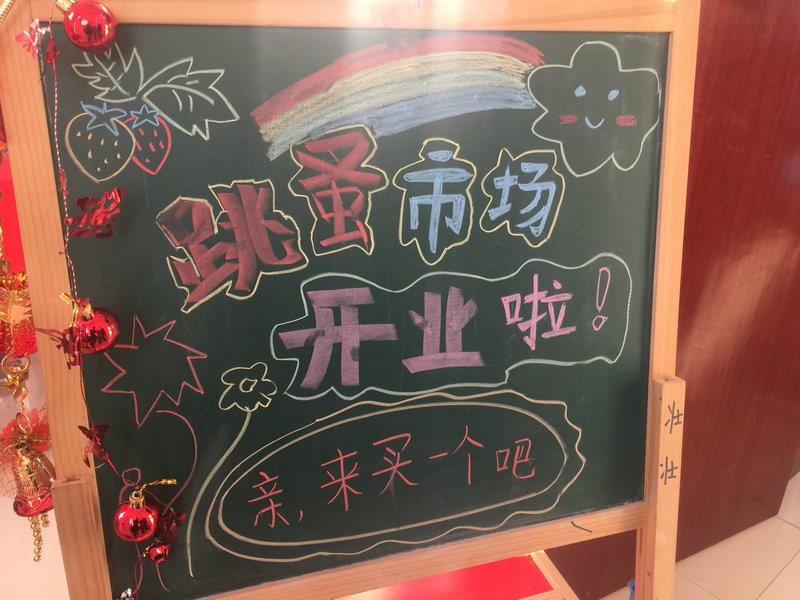 跳蚤市场
开业啦！
亲，来买一个吧
壮
壮